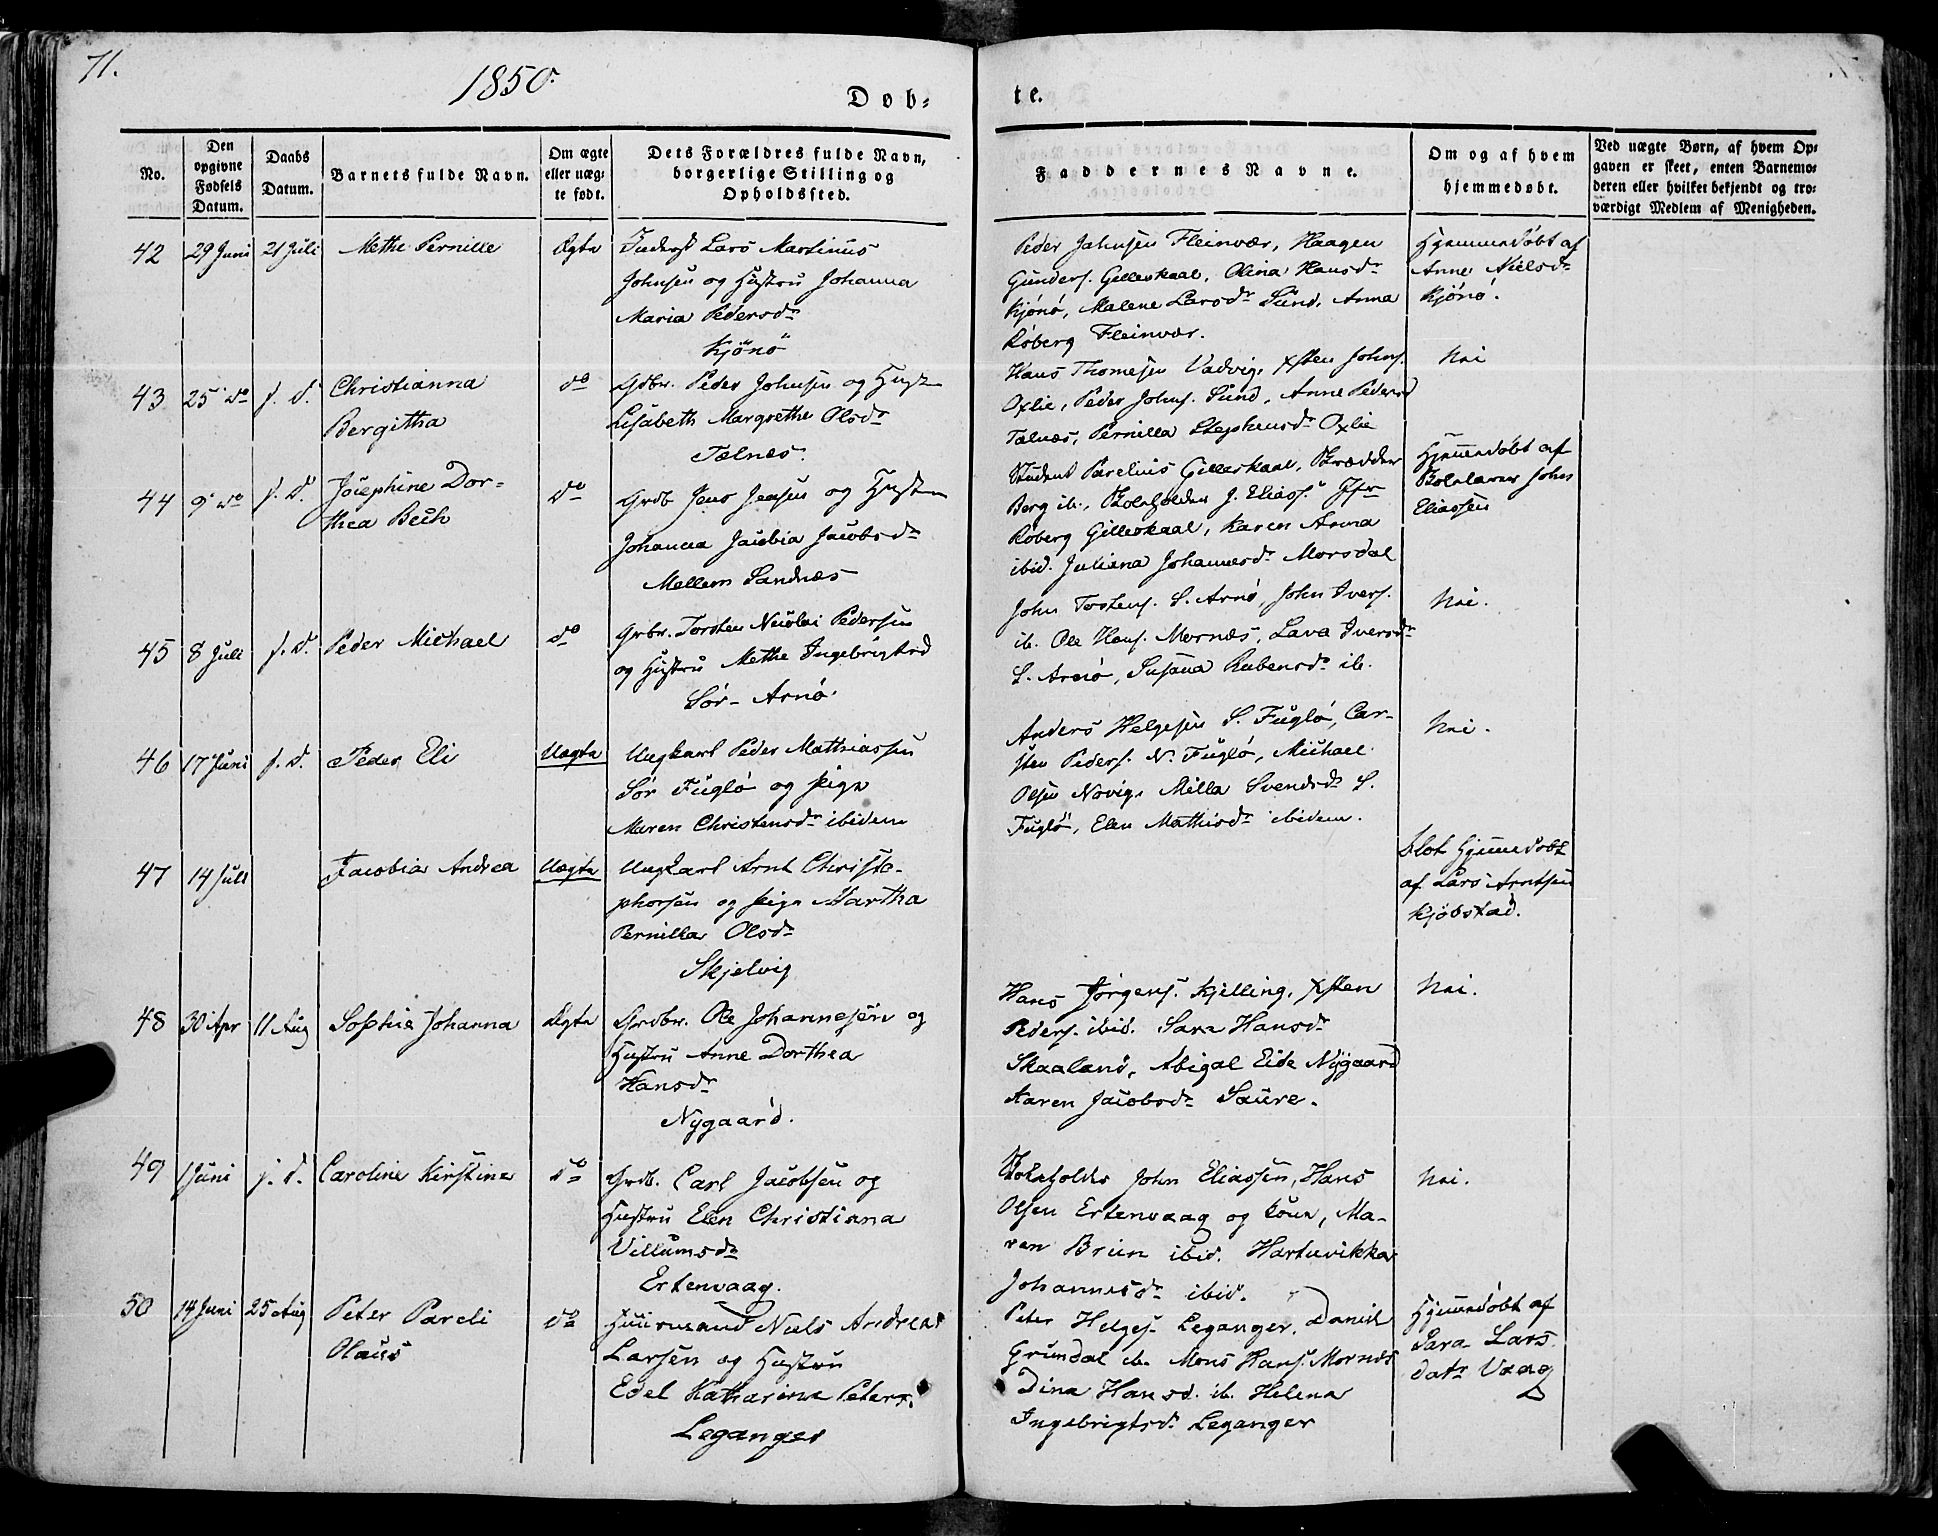 71.
1850.
Døb-
te.
No.
Den opgivne Fødsels Datum.
Daabs Datum.
Barnets fulde Navn.
Om ægte eller uægte født.
Dets Forældres fulde Navn, borgerlige Stilling og Opholdssted.
Faddernes Navne.
Om og af hvem hjemmedøbt.
Ved uægte Børn, af hvem Opgaven er skeet, enten Barnemoderen eller hvilket bekjendt og troværdigt Medlem af Menigheden.
42 29 Juni 21 Juli Methe Pernille Ægte
Inderst Lars Martinus
Johnsen og Hustru Johanna
Maria Pedersdr
Kjönö
Peder Johnsen Fleinvær, Haagen
Gunders. Gilleskaal, Olina Hansdr
Kjönö, Malene Larsdr Sund, Anna
Roberg Fleinvær.
Hjemmedøbt af
Anne Nielsdr
Kjönö.
43 25 do s. d. Christianna
Bergitha
do
Grdbr. Peder Johnsen og Hustr
Lisabeth Margrethe Olsdr
Telnes.
Hans Thomesen Vadvig, Xsten Johns.
Oxlie, Peder Johns. Sund, Anne Pedersd
Telnes, Pernilla Stephensdr Oxlie
Nei
44 9 do s. d. Josephine Dor-
thea Bech
do
Grdb Jens Jensen og Hustru
Johanna Jacobia Jacobsdr
Mellem Sandnes
Student Parelius Gilleskaal,
Berg ib., J. Eliass. Jfr
Roberg Gilleskaal, Karen Anna
ibid. Juliana Johannesdr Morsdal
Hjemmedøbt af
John
Eliassen
45 8 Juli s. d. Peder Michael do
Grbr. Torsten Nicolai Pedersen
og Hustru Methe Ingebrigtsd
Sör-Arnö.
John Tostens. S. Arnö, John Ivers.
ib. Ole Hans. Mornes, Lava Iversdr
S. Arnö, Susana Rubensdr ib.
Nei.
46 17 Juni s. d. Peder Eli Uægte
Ungkarl Peder Mathiassen
Sör Fuglö og Pige
Maren Christensdr ibidem
Anders Helgesen S. Fuglö, Car-
sten Peders. N. Fuglö, Michael
Olsen Novig, Milla Svendsdr S.
Fuglö, Elen Mathisdr ibidem.
Nei.
47 14 Juli Jacobia Andrea Uægte
Ungkarl Arnt Christo-
phersen og Pige Martha
Pernilla Olsdr
Skjelvig
blot Hjemmedøbt
af Lars Arntsen
Kjöbstad.
48 30 Apr 11 Aug Sophie Johanna Ægte
Grdbr. Ole Johannesen og
Hustru Anne Dorthea
Hansdr
Nygaard.
Hans Jörgens. Kjelling, Xsten
Peders. ibid. Sara Hansdr
Skaaland, Abigal Eide Nygaard
Karen Jacobsdr Saure.
Nei.
49 1 Juni s. d. Caroline Kirstine do
Grdb. Carl Jacobsen og
Hustru Elen Christiana
Villumsdr
Ertenvaag.
John Eliassen, Hans
Olsen Ertenvaag og Kone, Ma-
ren Bruun ibid.
Johannesdr ibid.
Nei.
50 14 Juni 25 Aug Peter Pareli
Olaus
do
Huusmand Niels Andreas
Larsen og Hustru
Edel Katharina Peters.
Leganger
Peter Helges. Leganger, Daniel
Grundal ib. Mons Hans. Mornes
Dina Hansd. ib. Helena
Ingebrigtsdr Leganger
Hjemmedøbt af
Sara Lars
datr Vaag